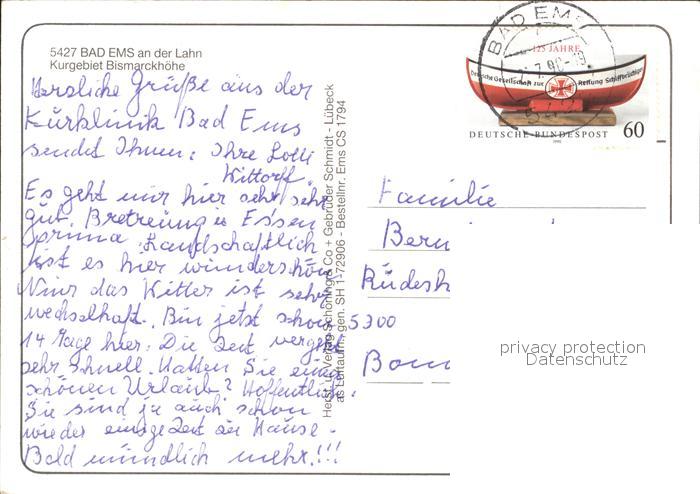 5427 BAD EMS an der Lahn
Kurgebiet Bismarckhöhe
Herzliche Grüße aus der
Kurklinik Bad Ems
sendet Ihnen: Ihre Lotti
Wittorf.
Es geht mir hier sehr sehr
gut. Betreuung u Essen
prima. Landschaftlich
ist es hier wunderschön
Nur das Wetter ist sehr
wechselhaft. Bin jetzt schon
14 Tage hier. Die Zeit vergeht
sehr schnell. Hatten Sie einen
schönen Urlaub? Hoffentlich.
Sie sind ja auch schon
wieder einige Zeit zu Hause.
Bald mündlich mehr!!!
Herst. u. Verlag Schöning & Co + Gebrüder Schmidt - Lübeck
als Luftaufn. gen. SH 1-72906 - Bestellnr. Ems CS 1794
BAD EMS
125 JAHRE
Deutsche Gesellschaft zur Rettung Schiffbrüchiger
DEUTSCHE BUNDESPOST 60
1990
Familie
Bern
Rüdesh
5300
Bonn
privacy protection
Datenschutz